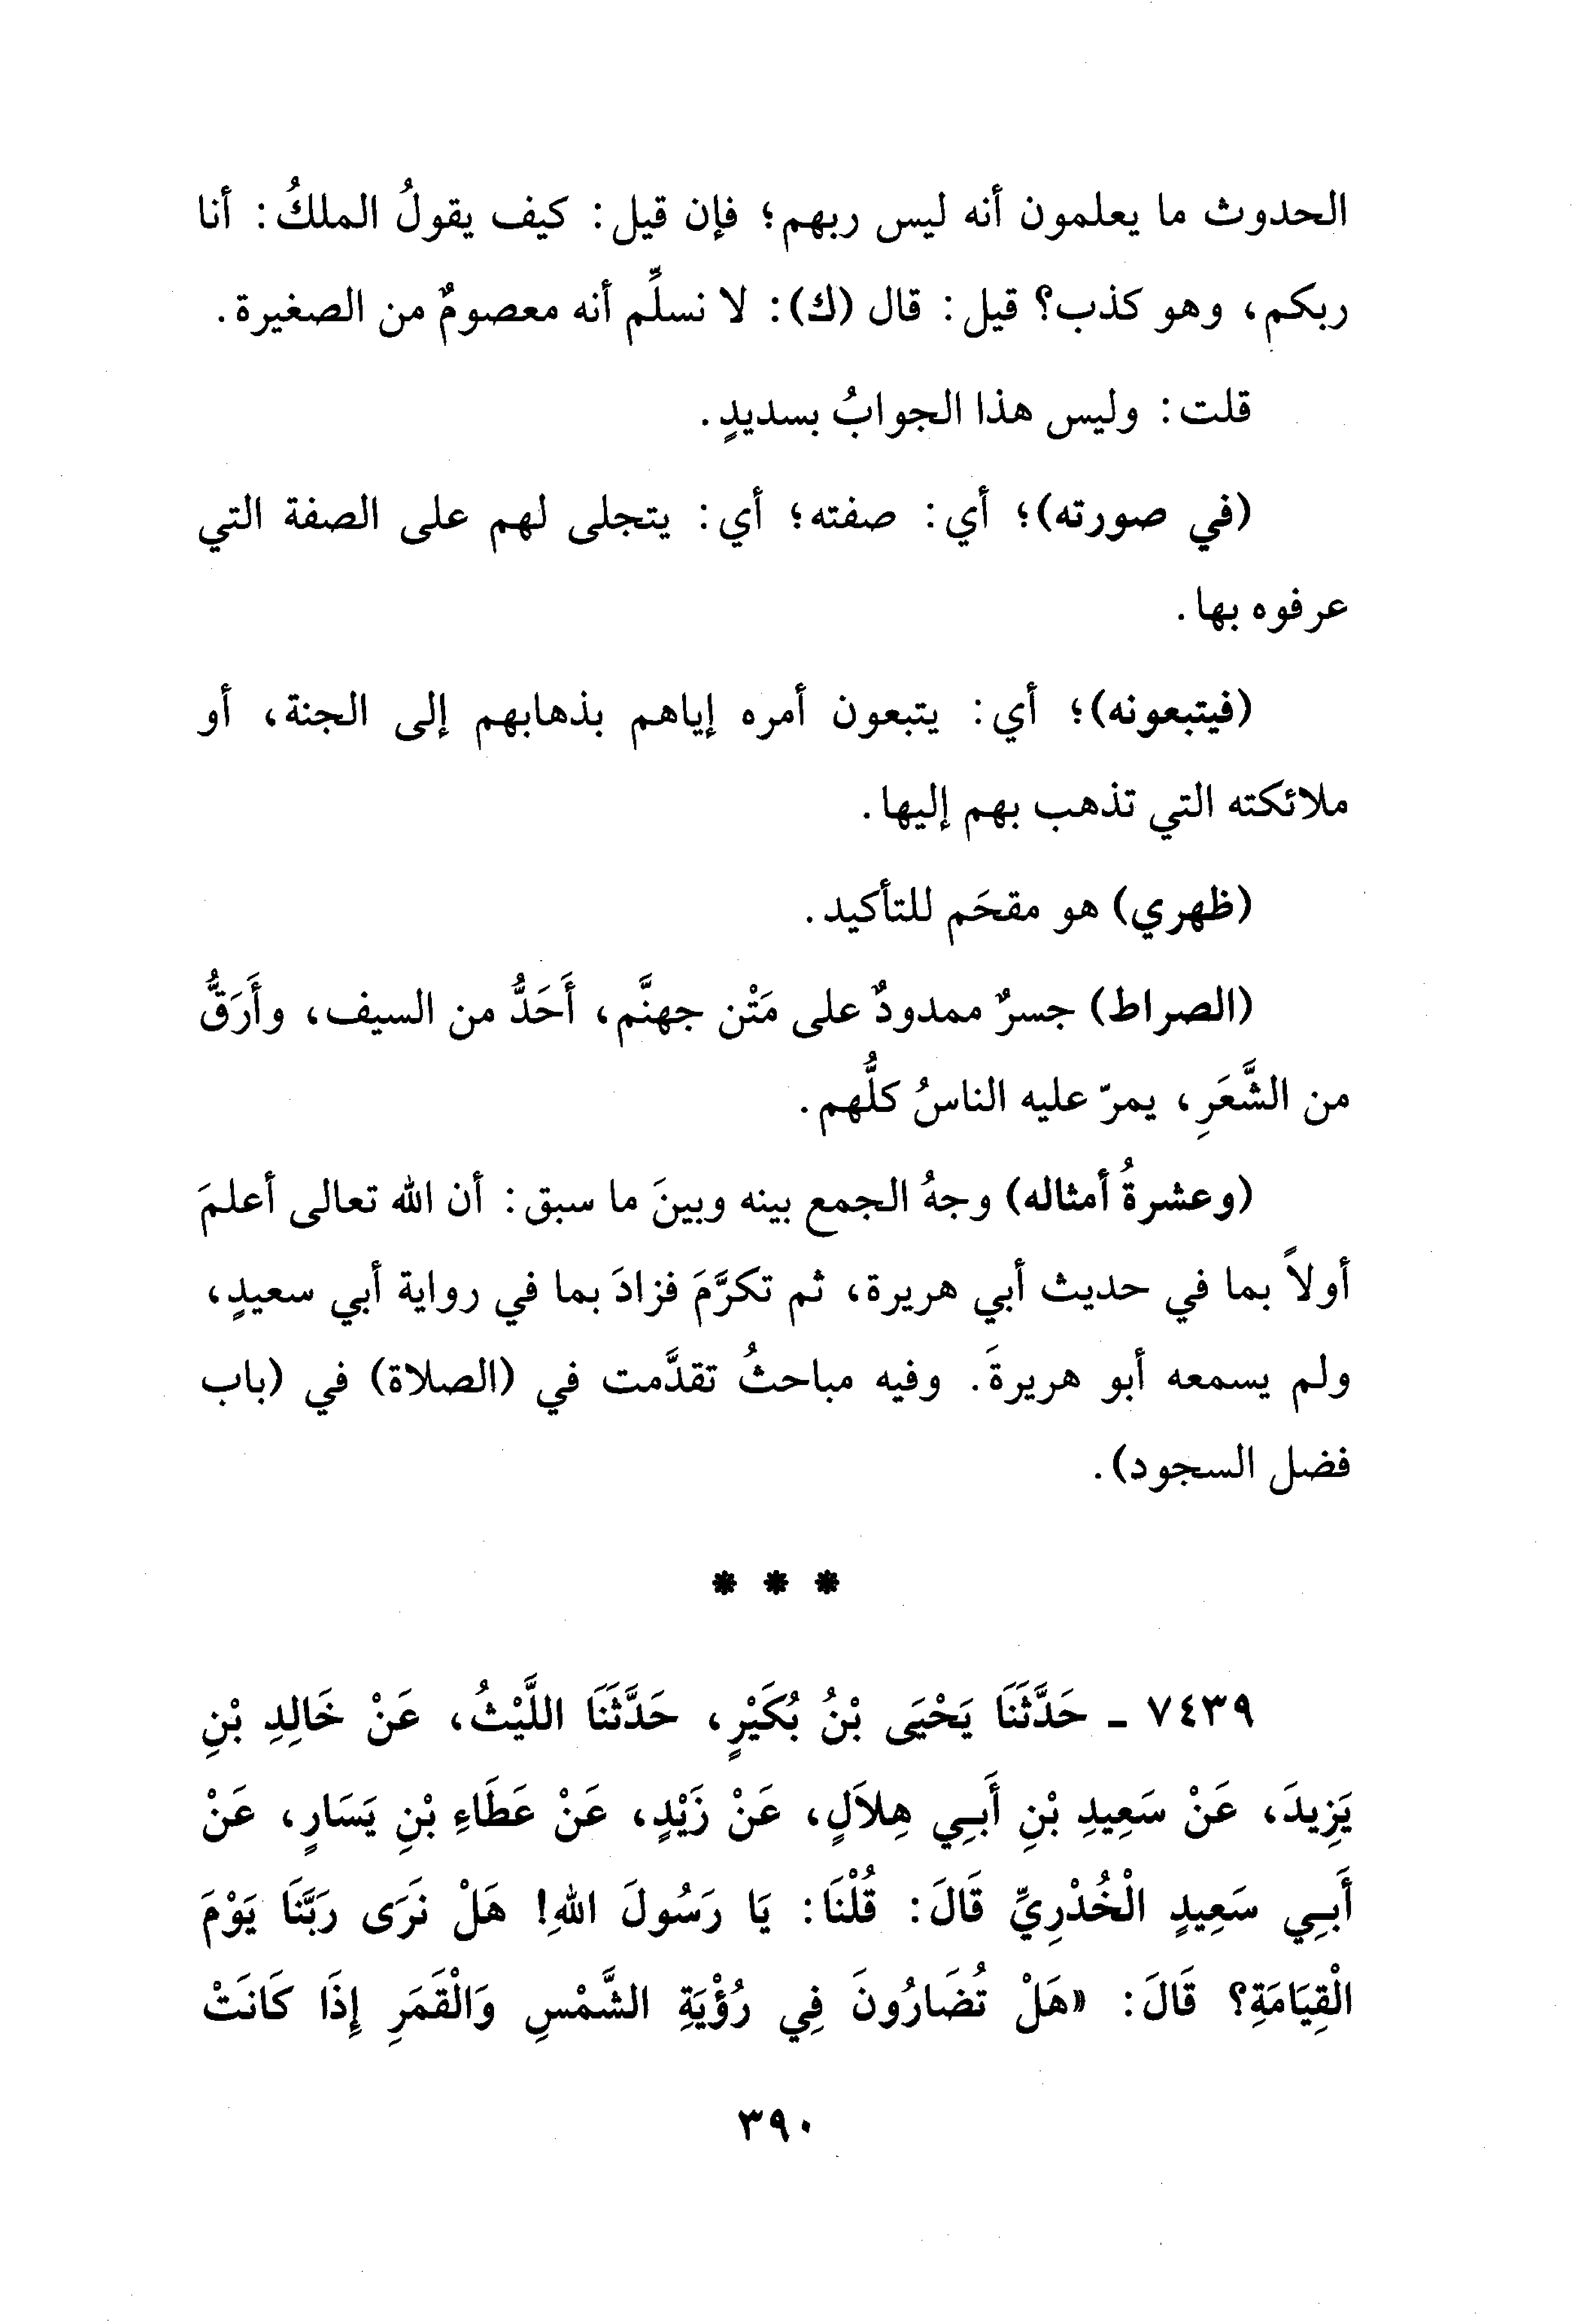 الحدوث ما يعلمون أنه ليس ربهم؛ فإن قيل: كيف يقولُ الملكُ: أنا
ربكم، وهو كذب؟ قيل: قال (ك): لا نسلِّم أنه معصومٌ من الصغيرة.
قلت: وليس هذا الجوابُ بسديدٍ.
(في صورته)؛ أي: صفته؛ أي: يتجلى لهم على الصفة التي
عرفوه بها.
(فيتبعونه)؛ أي: يتبعون أمره إياهم بذهابهم إلى الجنة، أو
ملائكته التي تذهب بهم إليها.
(ظهري) هو مقحَم للتأكيد.
(الصراط) جسرٌ ممدودٌ على مَتْن جهنَّم، أَحَدُّ من السيف، وأَرَقُّ
من الشَّعَرِ، يمرّ عليه الناسُ كلُّهم.
(وعشرةُ أمثاله) وجهُ الجمع بينه وبينَ ما سبق: أن الله تعالى أعلمَ
أولاً بما في حديث أبي هريرة، ثم تكرَّمَ فزادَ بما في رواية أبي سعيدٍ،
ولم يسمعه أبو هريرةَ. وفيه مباحثُ تقدَّمت في (الصلاة) في (باب
فضل السجود).
* * *
٧٤٣٩ - حَدَّثَنَا يَحْيَى بْنُ بُكَيْرٍ، حَدَّثَنَا اللَّيْثُ، عَنْ خَالِدِ بْنِ
يَزِيدَ، عَنْ سَعِيدِ بْنِ أَبِي هِلاَلٍ، عَنْ زَيْدٍ، عَنْ عَطَاءِ بْنِ يَسَارٍ، عَنْ
أَبِي سَعِيدٍ الْخُدْرِيِّ قَالَ: قُلْنَا: يَا رَسُولَ اللهِ! هَلْ نَرَى رَبَّنَا يَوْمَ
الْقِيَامَةِ؟ قَالَ: «هَلْ تُضَارُونَ فِي رُؤْيَةِ الشَّمْسِ وَالْقَمَرِ إِذَا كَانَتْ
٣٩٠